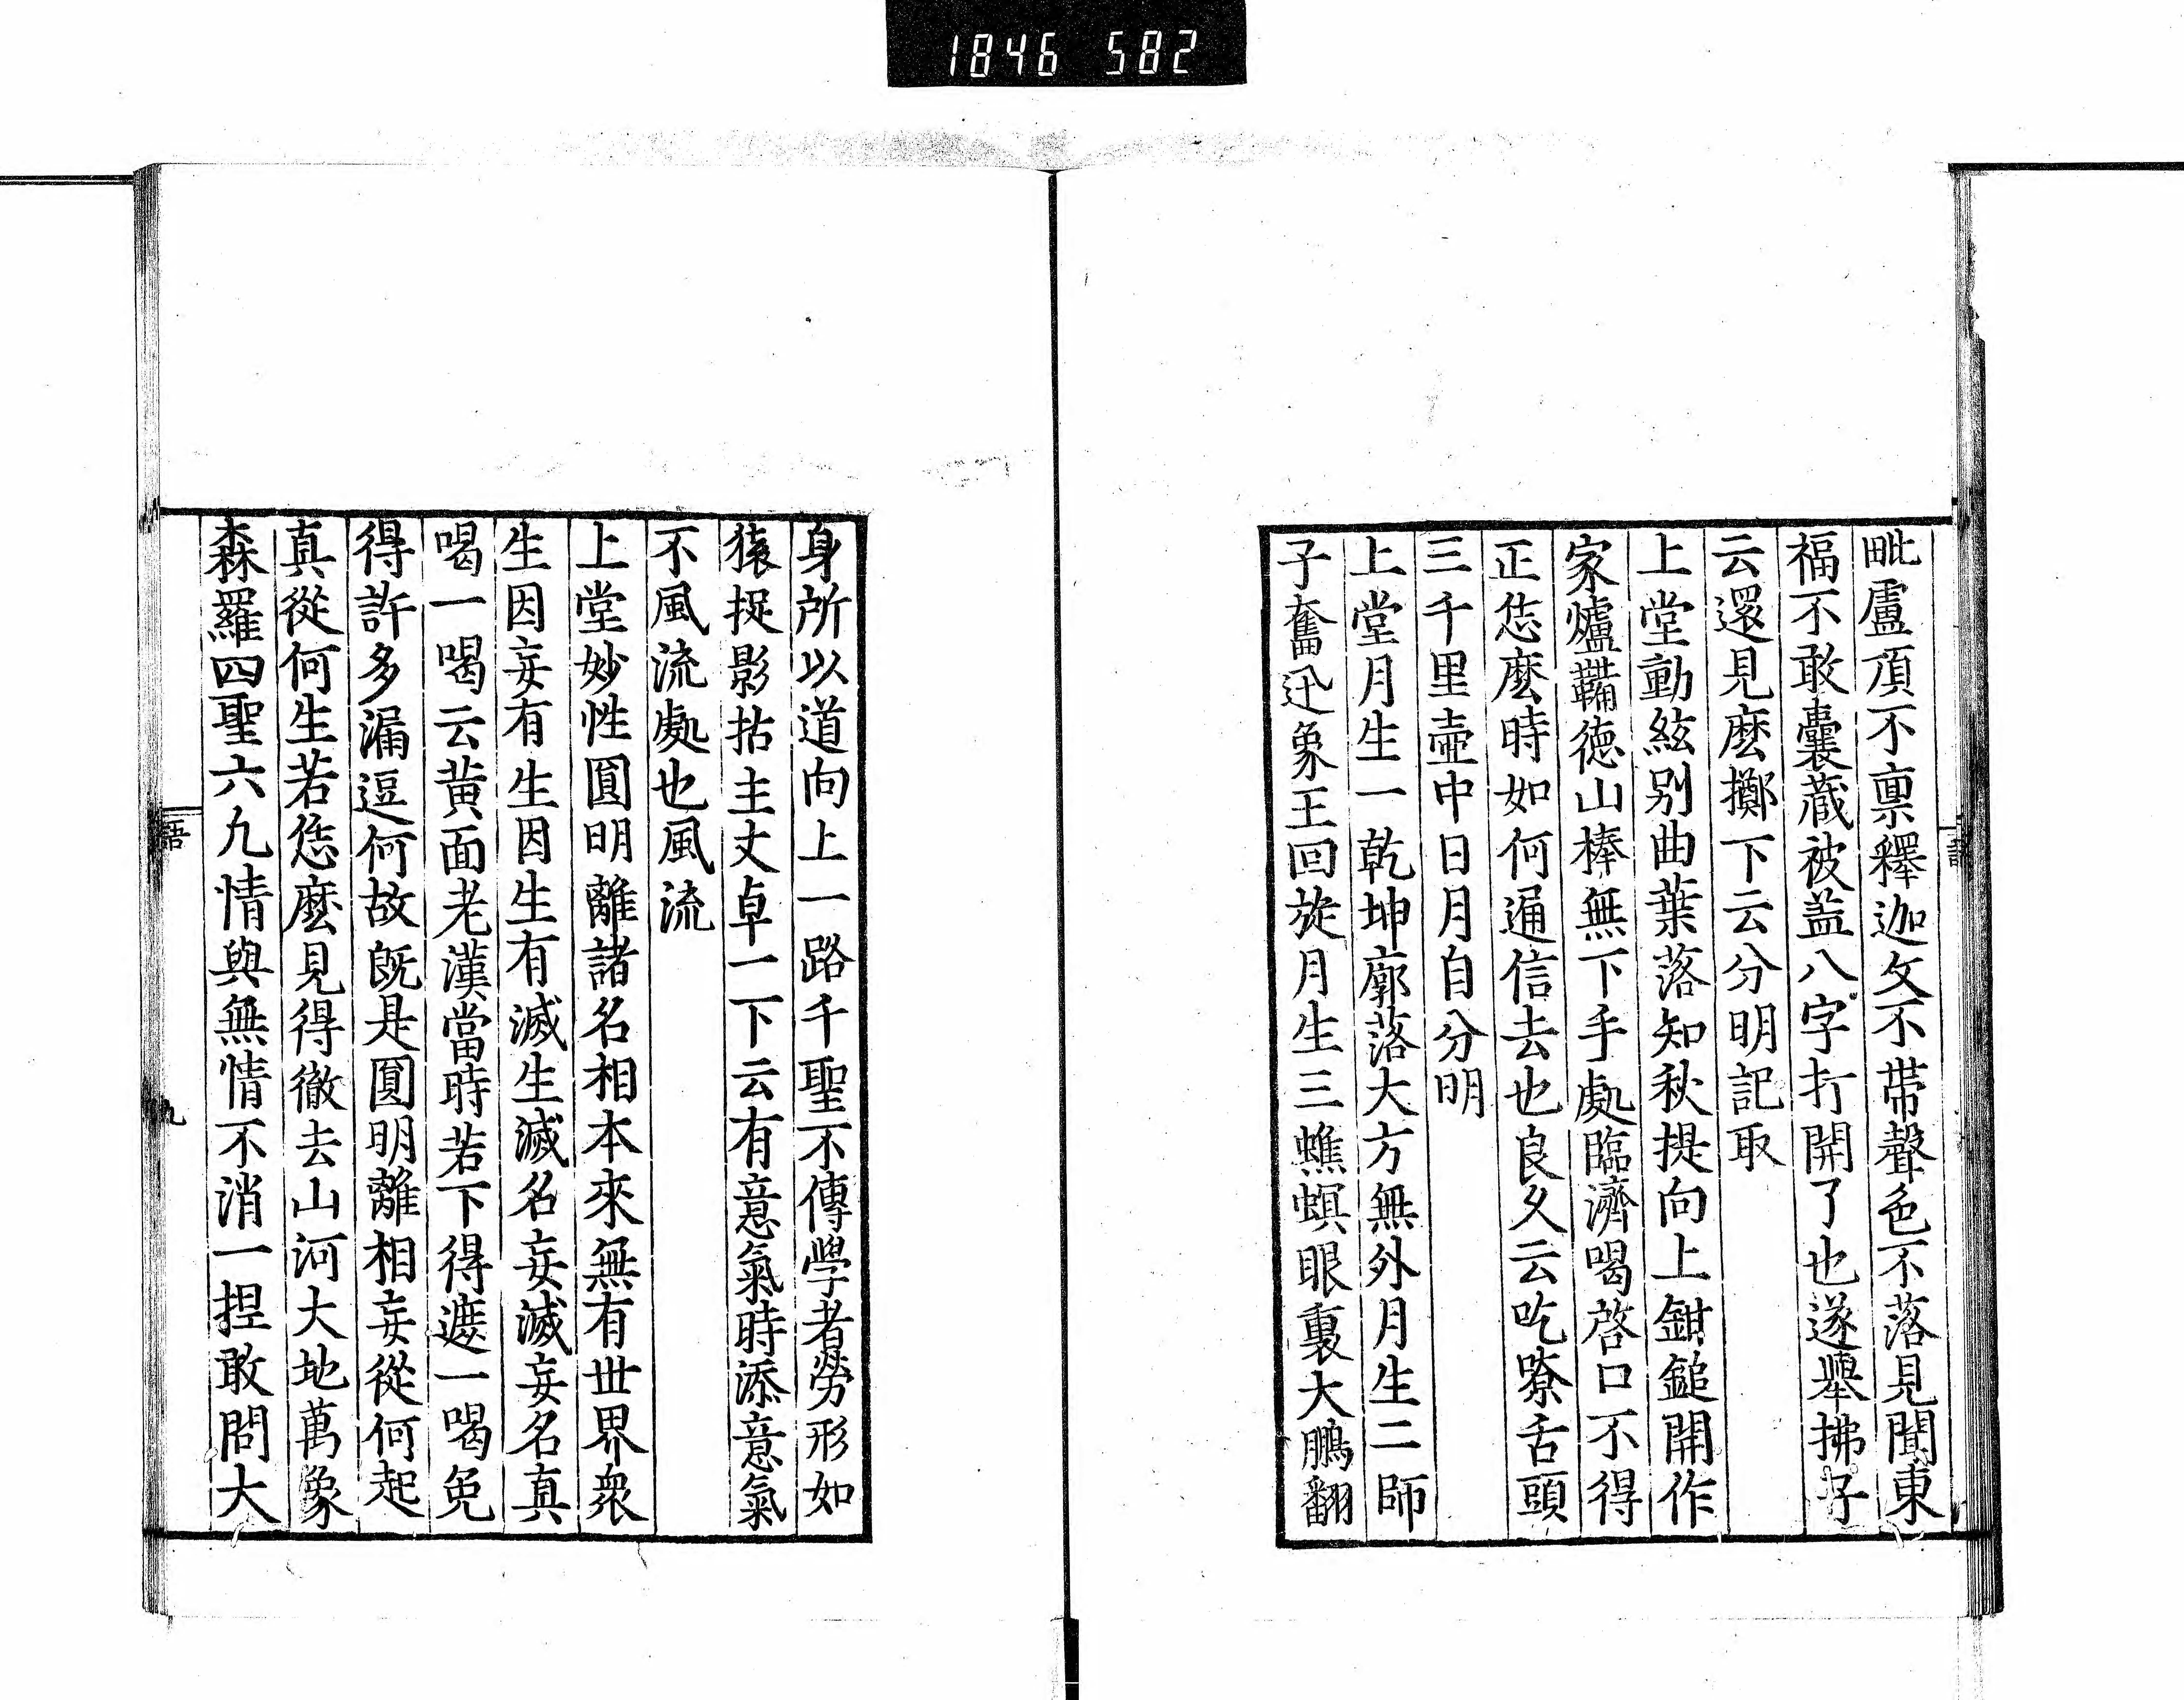 1846 582
毗盧頂不禀釋迦文不帶聲色不落見聞東
福不敢囊藏被盖八字打開了也遂舉拂子
云還見麽擲下云分明記取
上堂動絃别曲葉落知秋提向上鉗鎚開作
家爐鞴德山棒無下手處臨濟喝啓口不得
正恁麽時如何通信去也良久云吃嘹舌頭
三千里壺中日月自分明
上堂月生一乾坤廓落大方無外月生二師
子奮迅象王回旋月生三蟭螟眼裏大鵬翻
語
身所以道向上一路千聖不傳學者勞形如
猿捉影拈主丈卓一下云有意氣時添意氣
不風流處也風流
上堂妙性圓明離諸名相本來無有世界衆
生因妄有生因生有滅生滅名妄滅妄名真
喝一喝云黄面老漢當時若下得遮一喝免
得許多漏逗何故既是圓明離相妄從何起
真從何生若恁麽見得徹去山河大地萬象
森羅四聖六凡情與無情不消一揑敢問大
語
九